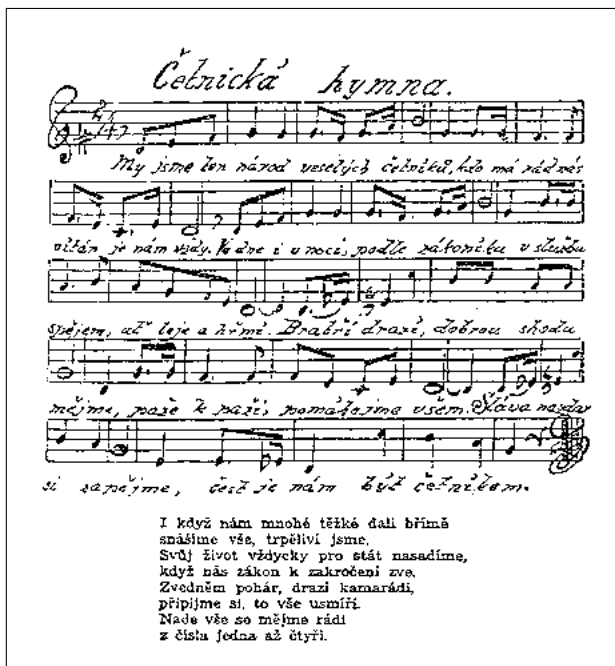 Četnická hymna.
My jsme ten národ veselých četníků, kdo má rád nás
vítán je nám vždy. Ve dne i v noci, podle zákoníku v službu
spějem, ať leje a hřmí. Bratří drazí, dobrou shodu
mějme, paže k paži, pomáhejme všem. Sláva nazdar
si zapějme, čest je nám být četníkem.
I když nám mnohé těžké dali břímě
snášíme vše, trpěliví jsme.
Svůj život vždycky pro stát nasadíme,
když nás zákon k zakročení zve.
Zvedněm pohár, drazí kamarádi,
připijme si, to vše usmíří.
Nade vše se mějme rádi
z čísla jedna až čtyři.